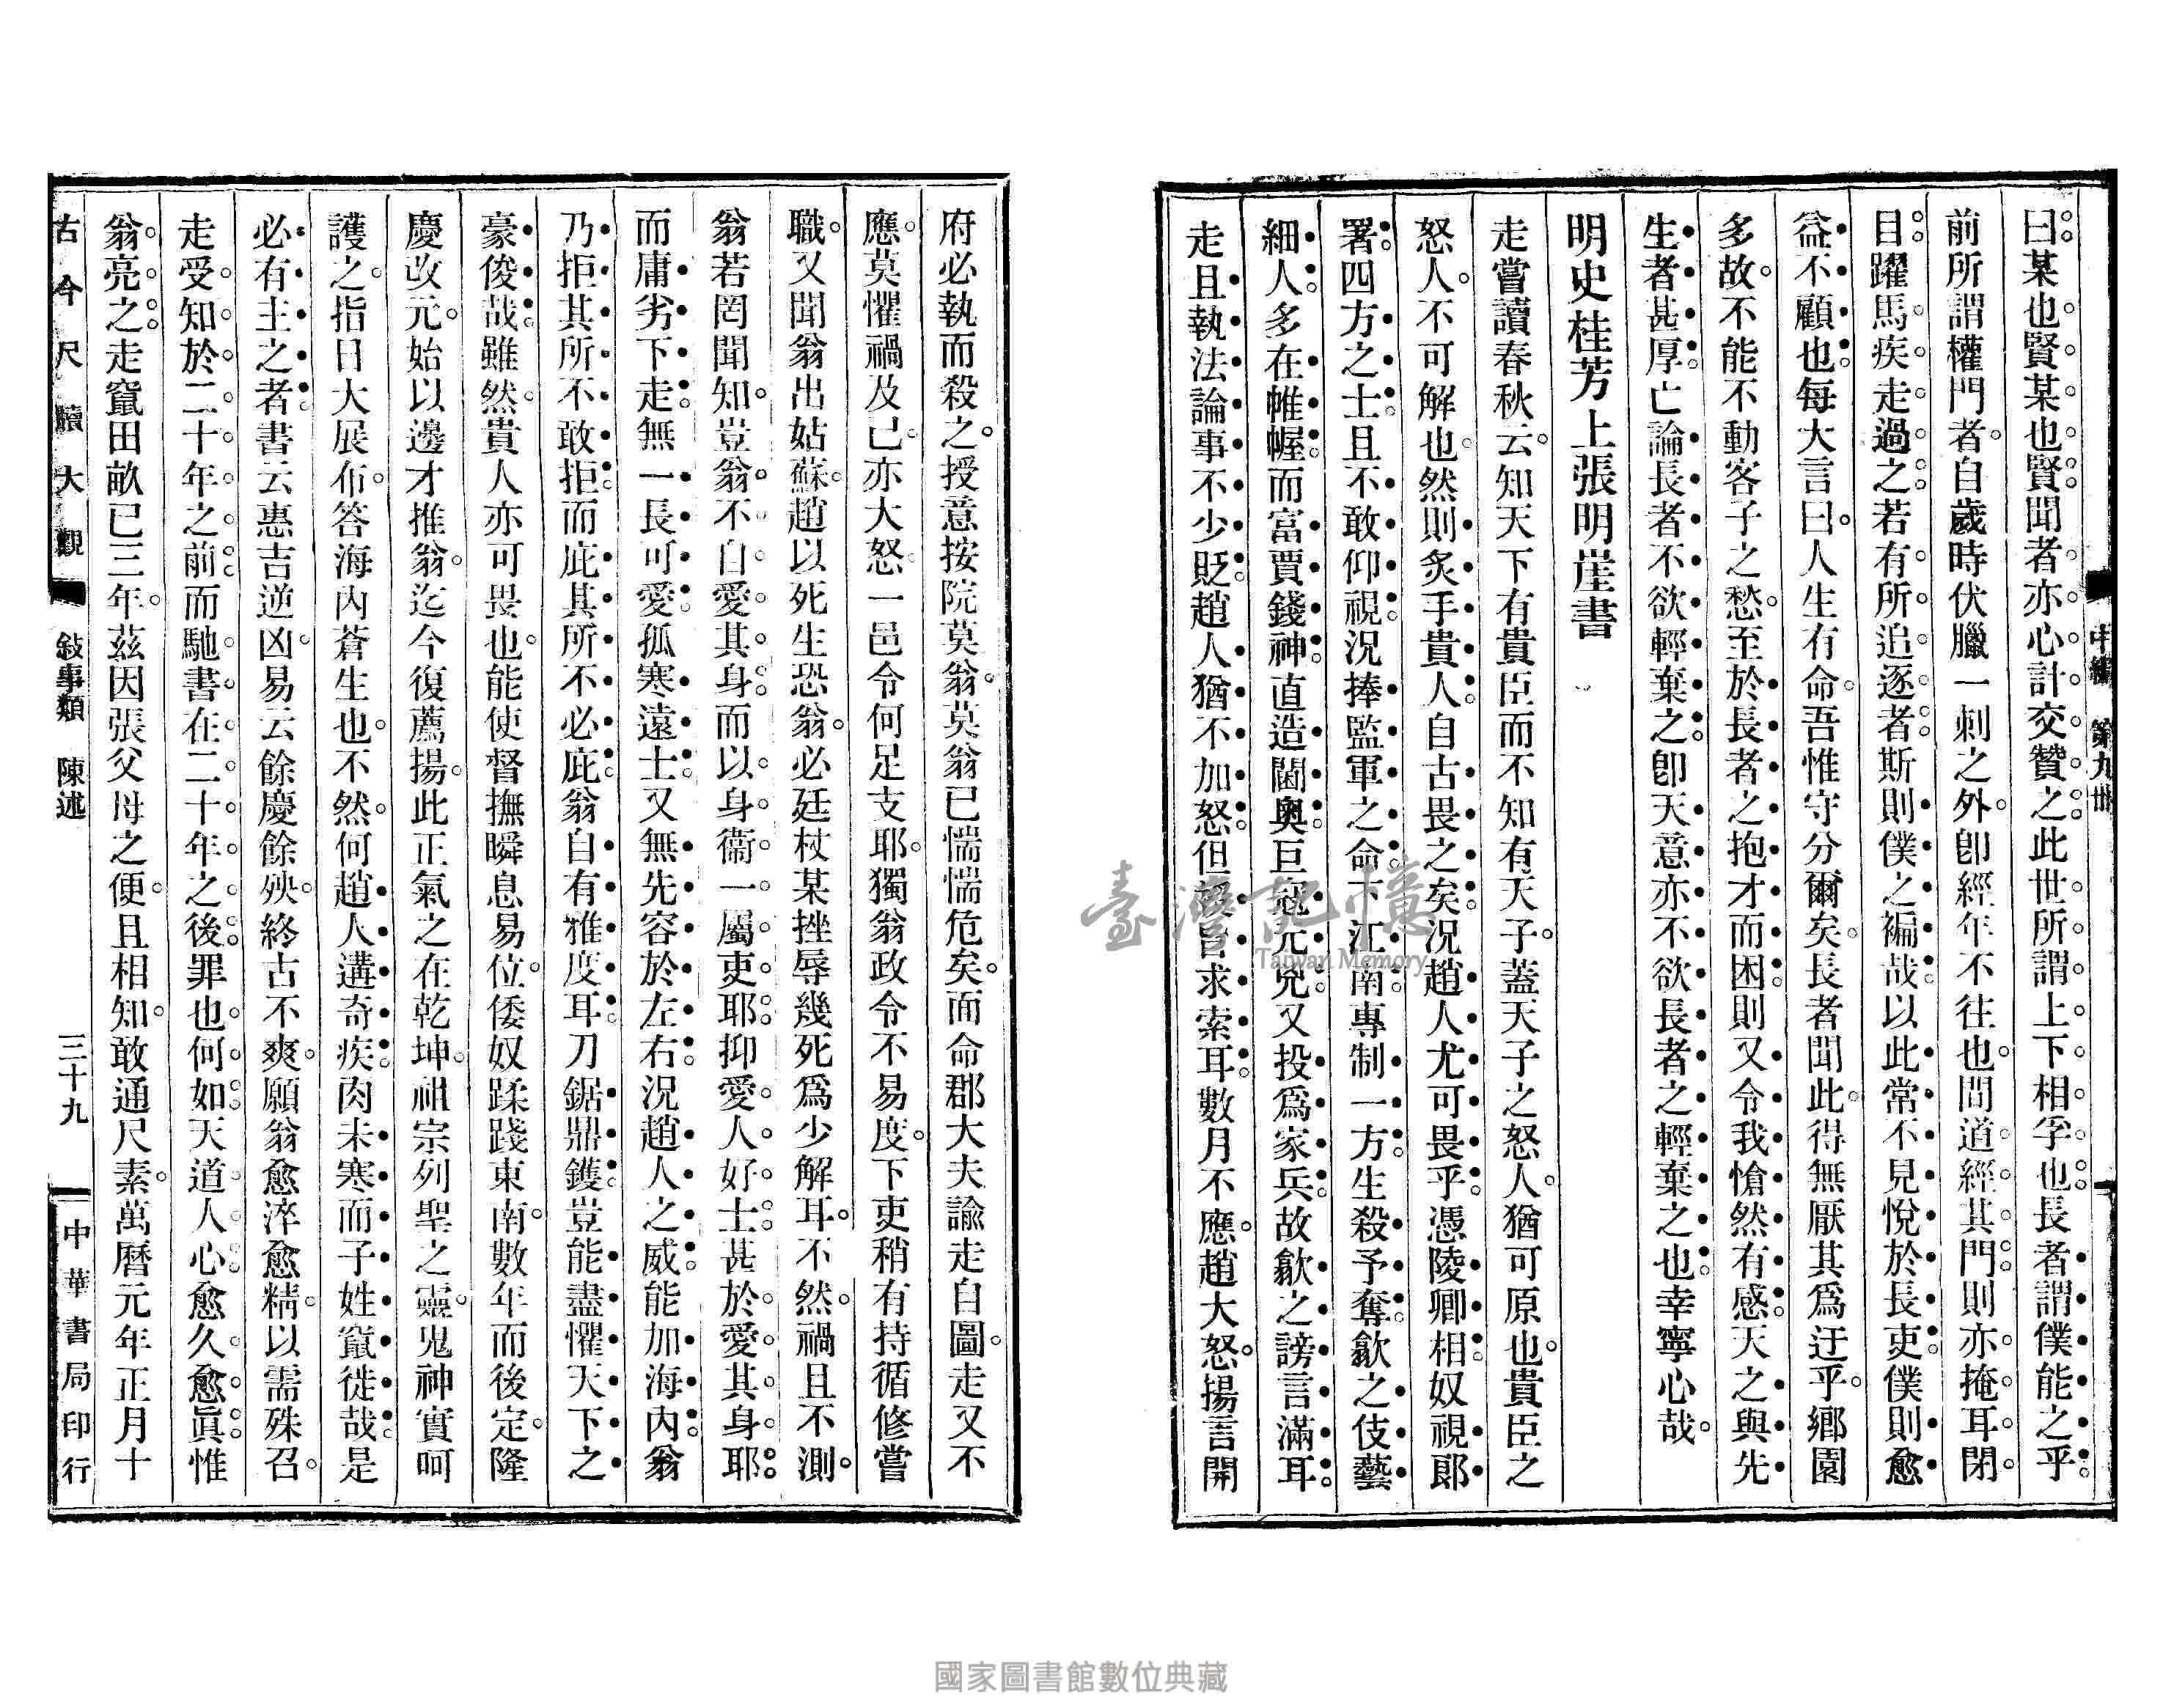 中編　第九卌
曰某也賢某也賢聞者亦心計交贊之此世所謂上下相孚也長者謂僕能之乎
前所謂權門者自歲時伏臘一刺之外卽經年不往也間道經其門則亦掩耳閉
目躍馬疾走過之若有所追逐者斯則僕之褊哉以此常不見悅於長吏僕則愈
益不顧也每大言曰人生有命吾惟守分爾矣長者聞此得無厭其爲迂乎鄕園
多故不能不動客子之愁至於長者之抱才而困則又令我愴然有感天之與先
生者甚厚亡論長者不欲輕棄之卽天意亦不欲長者之輕棄之也幸寧心哉
明史桂芳上張明崖書
走嘗讀春秋云知天下有貴臣而不知有天子蓋天子之怒人猶可原也貴臣之
怒人不可解也然則炙手貴人自古畏之矣況趙人尤可畏乎憑陵卿相奴視郞
署四方之士且不敢仰視況捧監軍之命下江南專制一方生殺予奪歙之伎藝
細人多在帷幄而富賈錢神直造閫奧巨寇元兇又投爲家兵故歙之謗言滿耳
走且執法論事不少貶趙人猶不加怒但緩求索耳數月不應趙大怒揚言開
府必執而殺之授意按院莫翁莫翁已惴惴危矣面命郡大夫諭走自圖走又不
應莫懼禍及已亦大怒一邑令何足支耶獨翁政令不易度下吏稍有持循修嘗
職又聞翁出姑蘇趙以死生恐翁必廷杖某挫辱幾死爲少解耳不然禍且不測
翁若罔聞知豈翁不自愛其身而以身衞一屬吏耶抑愛人好士甚於愛其身耶
而庸劣下走無一長可愛孤寒遠士又無先容於左右況趙人之威能加海內翁
乃拒其所不敢拒而庇其所不必庇翁自有雅度耳刀鋸鼎鑊豈能盡懼天下之
豪俊哉雖然貴人亦可畏也能使督撫瞬息易位倭奴蹂踐東南數年而後定隆
慶改元始以邊才推翁迄今復薦揚此正氣之在乾坤祖宗列聖之靈鬼神實呵
護之指日大展布答海內蒼生也不然何趙人遘奇疾肉未寒而子姓竄徙哉是
必有主之者書云惠吉逆凶易云餘慶餘殃終古不爽願翁愈淬愈精以需殊召
走受知於二十年之前而馳書在二十年之後罪也何如天道人心愈久愈眞惟
翁亮之走竄田畝已三年茲因張父母之便且相知敢通尺素萬曆元年正月十
古今尺牘大觀　敍事類　陳述　三十九　中華書局印行
臺灣記憶
Taiwan Memory
國家圖書館數位典藏